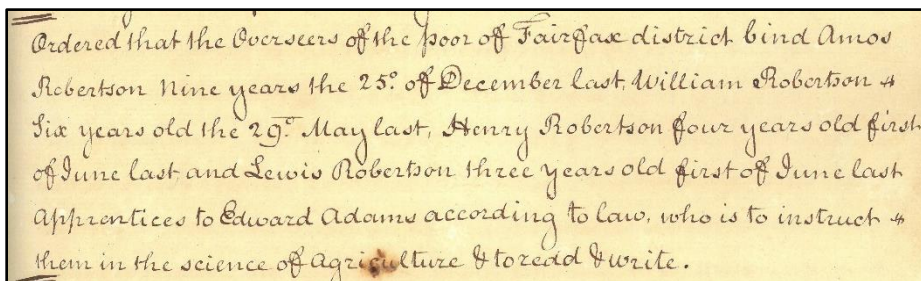 Ordered that the Overseers of the poor of Fairfax district bind Amos
Robertson Nine years the 25.° of December last, William Robertson
Six years old the 29.° May last, Henry Robertson four years old first
of June last and Lewis Robertson three years old first of June last
Apprentices to Edward Adams according to law, who is to instruct
them in the science of Agriculture & to redd & write.